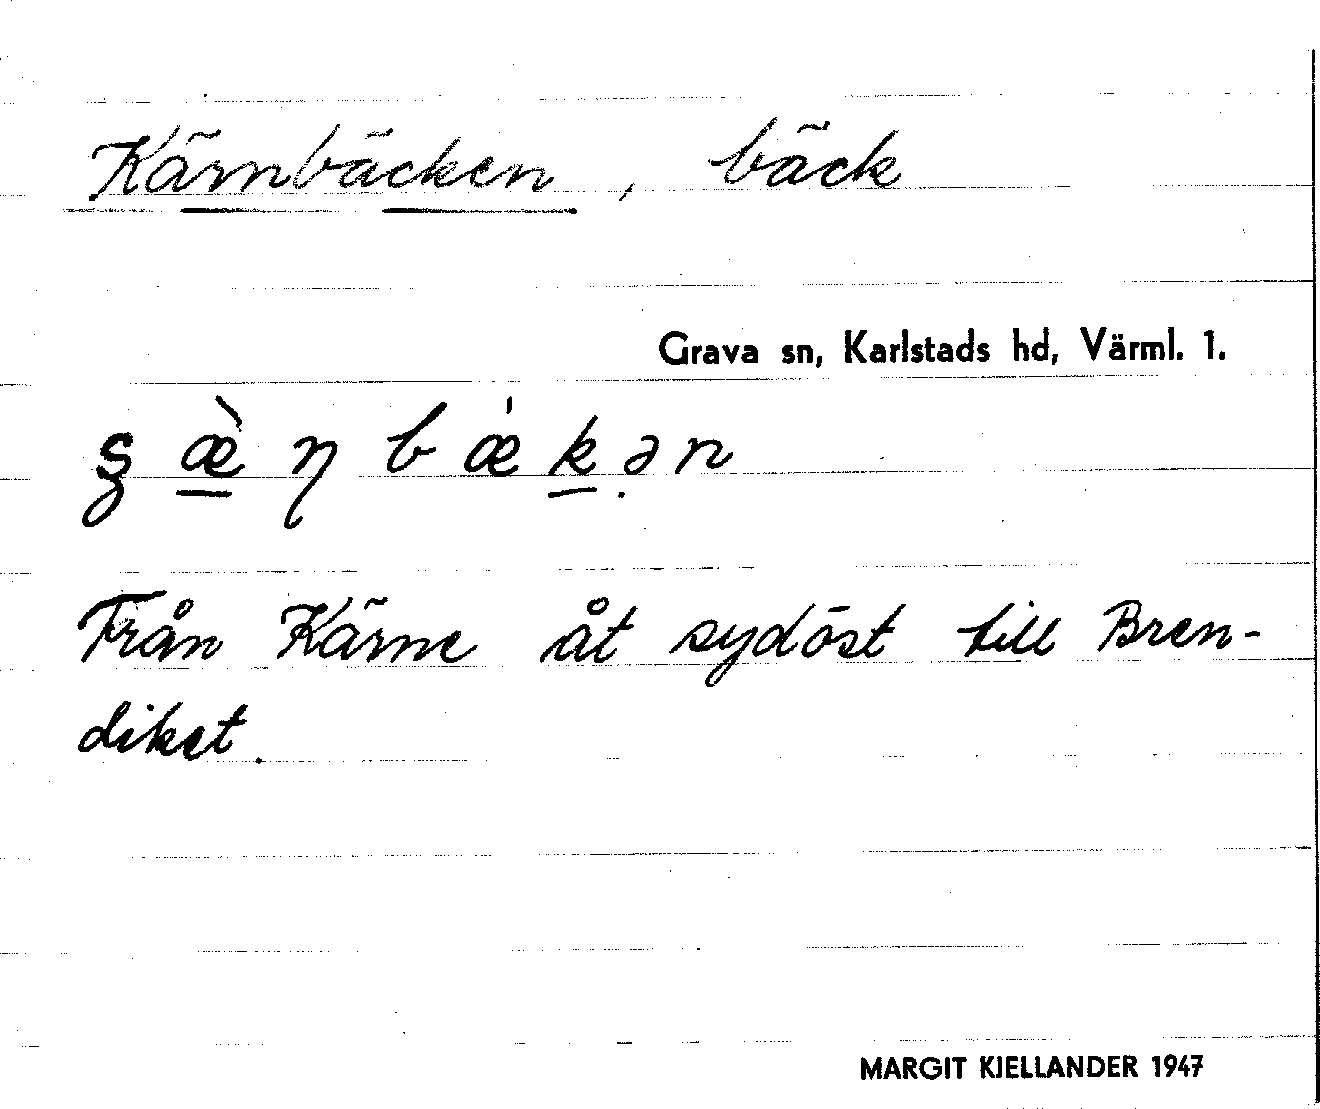 Kärnbäcken, bäck
Grava sn, Karlstads hd, Värml. 1.
ʂæ̀ɳbǽkən
Från Kärne åt sydöst till Bren-
diket.
MARGIT KJELLANDER 1947